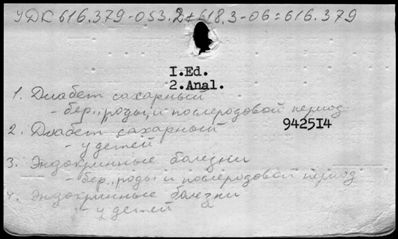 УДК 616.379-053.2+618.3-06:616.379
I.Ed.
2.Anal.
1. Диабет сахарный
- бер., роды, и послеродовой период
2. Диабет сахарный
- у детей
9425I4
3. Эндокринные болезни
- бер., роды и послеродовой период
4. Эндокринные болезни
- у детей